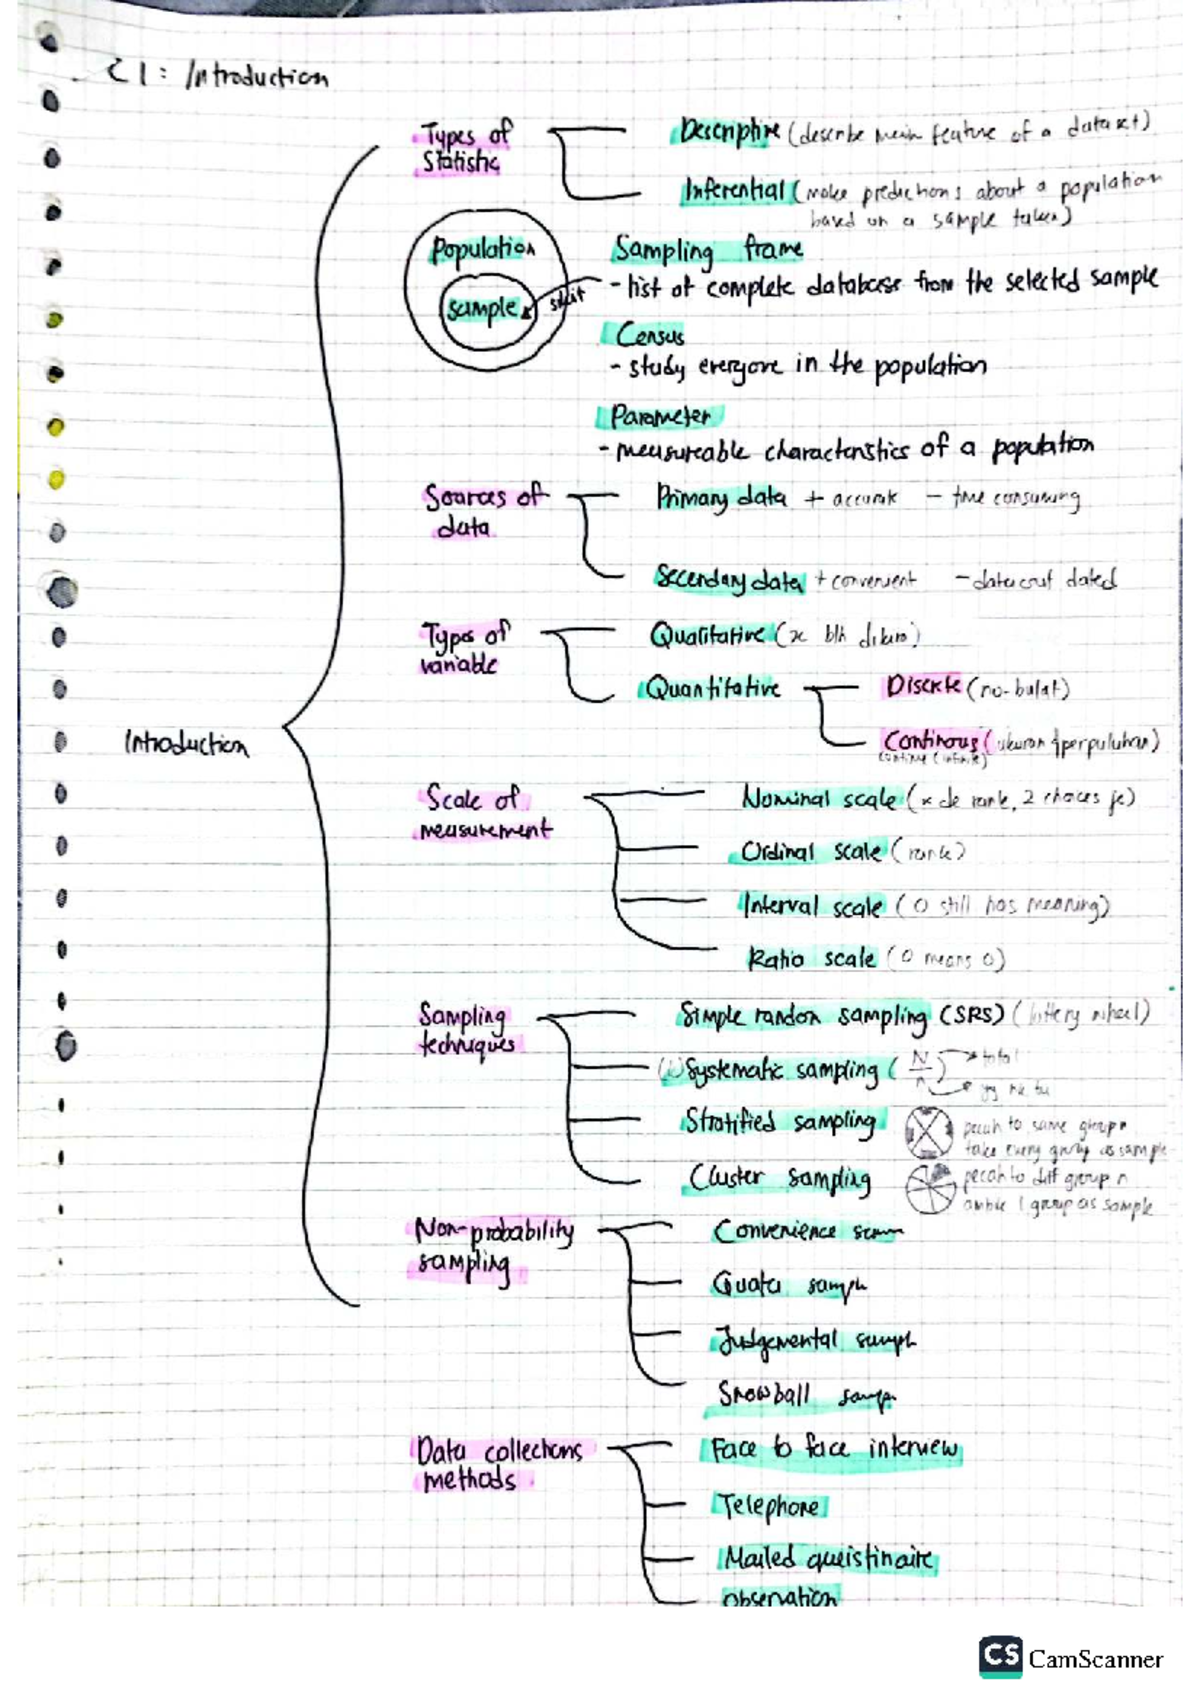 C1: Introduction
Types of Statistic
Descriptive (describe main feature of a dataset)
Inferential (make predictions about a population
based on a sample taken)
Population
Sample
Sampling frame
- list of complete database from the selected sample
Census
- study everyone in the population
Parameter
- measureable characteristics of a population
Sources of
data
Primary data + accurate - time consuming
Secondary data + convenient - data out dated
Types of
variable
Qualitative (x blh dikira)
Quantitative
Discrete (no-bulat)
Continous (ukuran & perpuluhan)
Introduction
Scale of
measurement
Nominal scale (x de rank, 2 choices je)
Ordinal scale (rank)
Interval scale (0 still has meaning)
Ratio scale (0 means 0)
Sampling
techniques
Simple random sampling (SRS) (lottery wheel)
Systematic sampling (N/n) total
Stratified sampling
pecah to same group n
take every group as sample
Cluster sampling
pecah to diff group n
ambik 1 group as sample
Non-probability
sampling
Convenience
Quota
Judgemental
Snowball
Data collections
methods
Face to face interview
Telephone
Mailed
observation
CS CamScanner